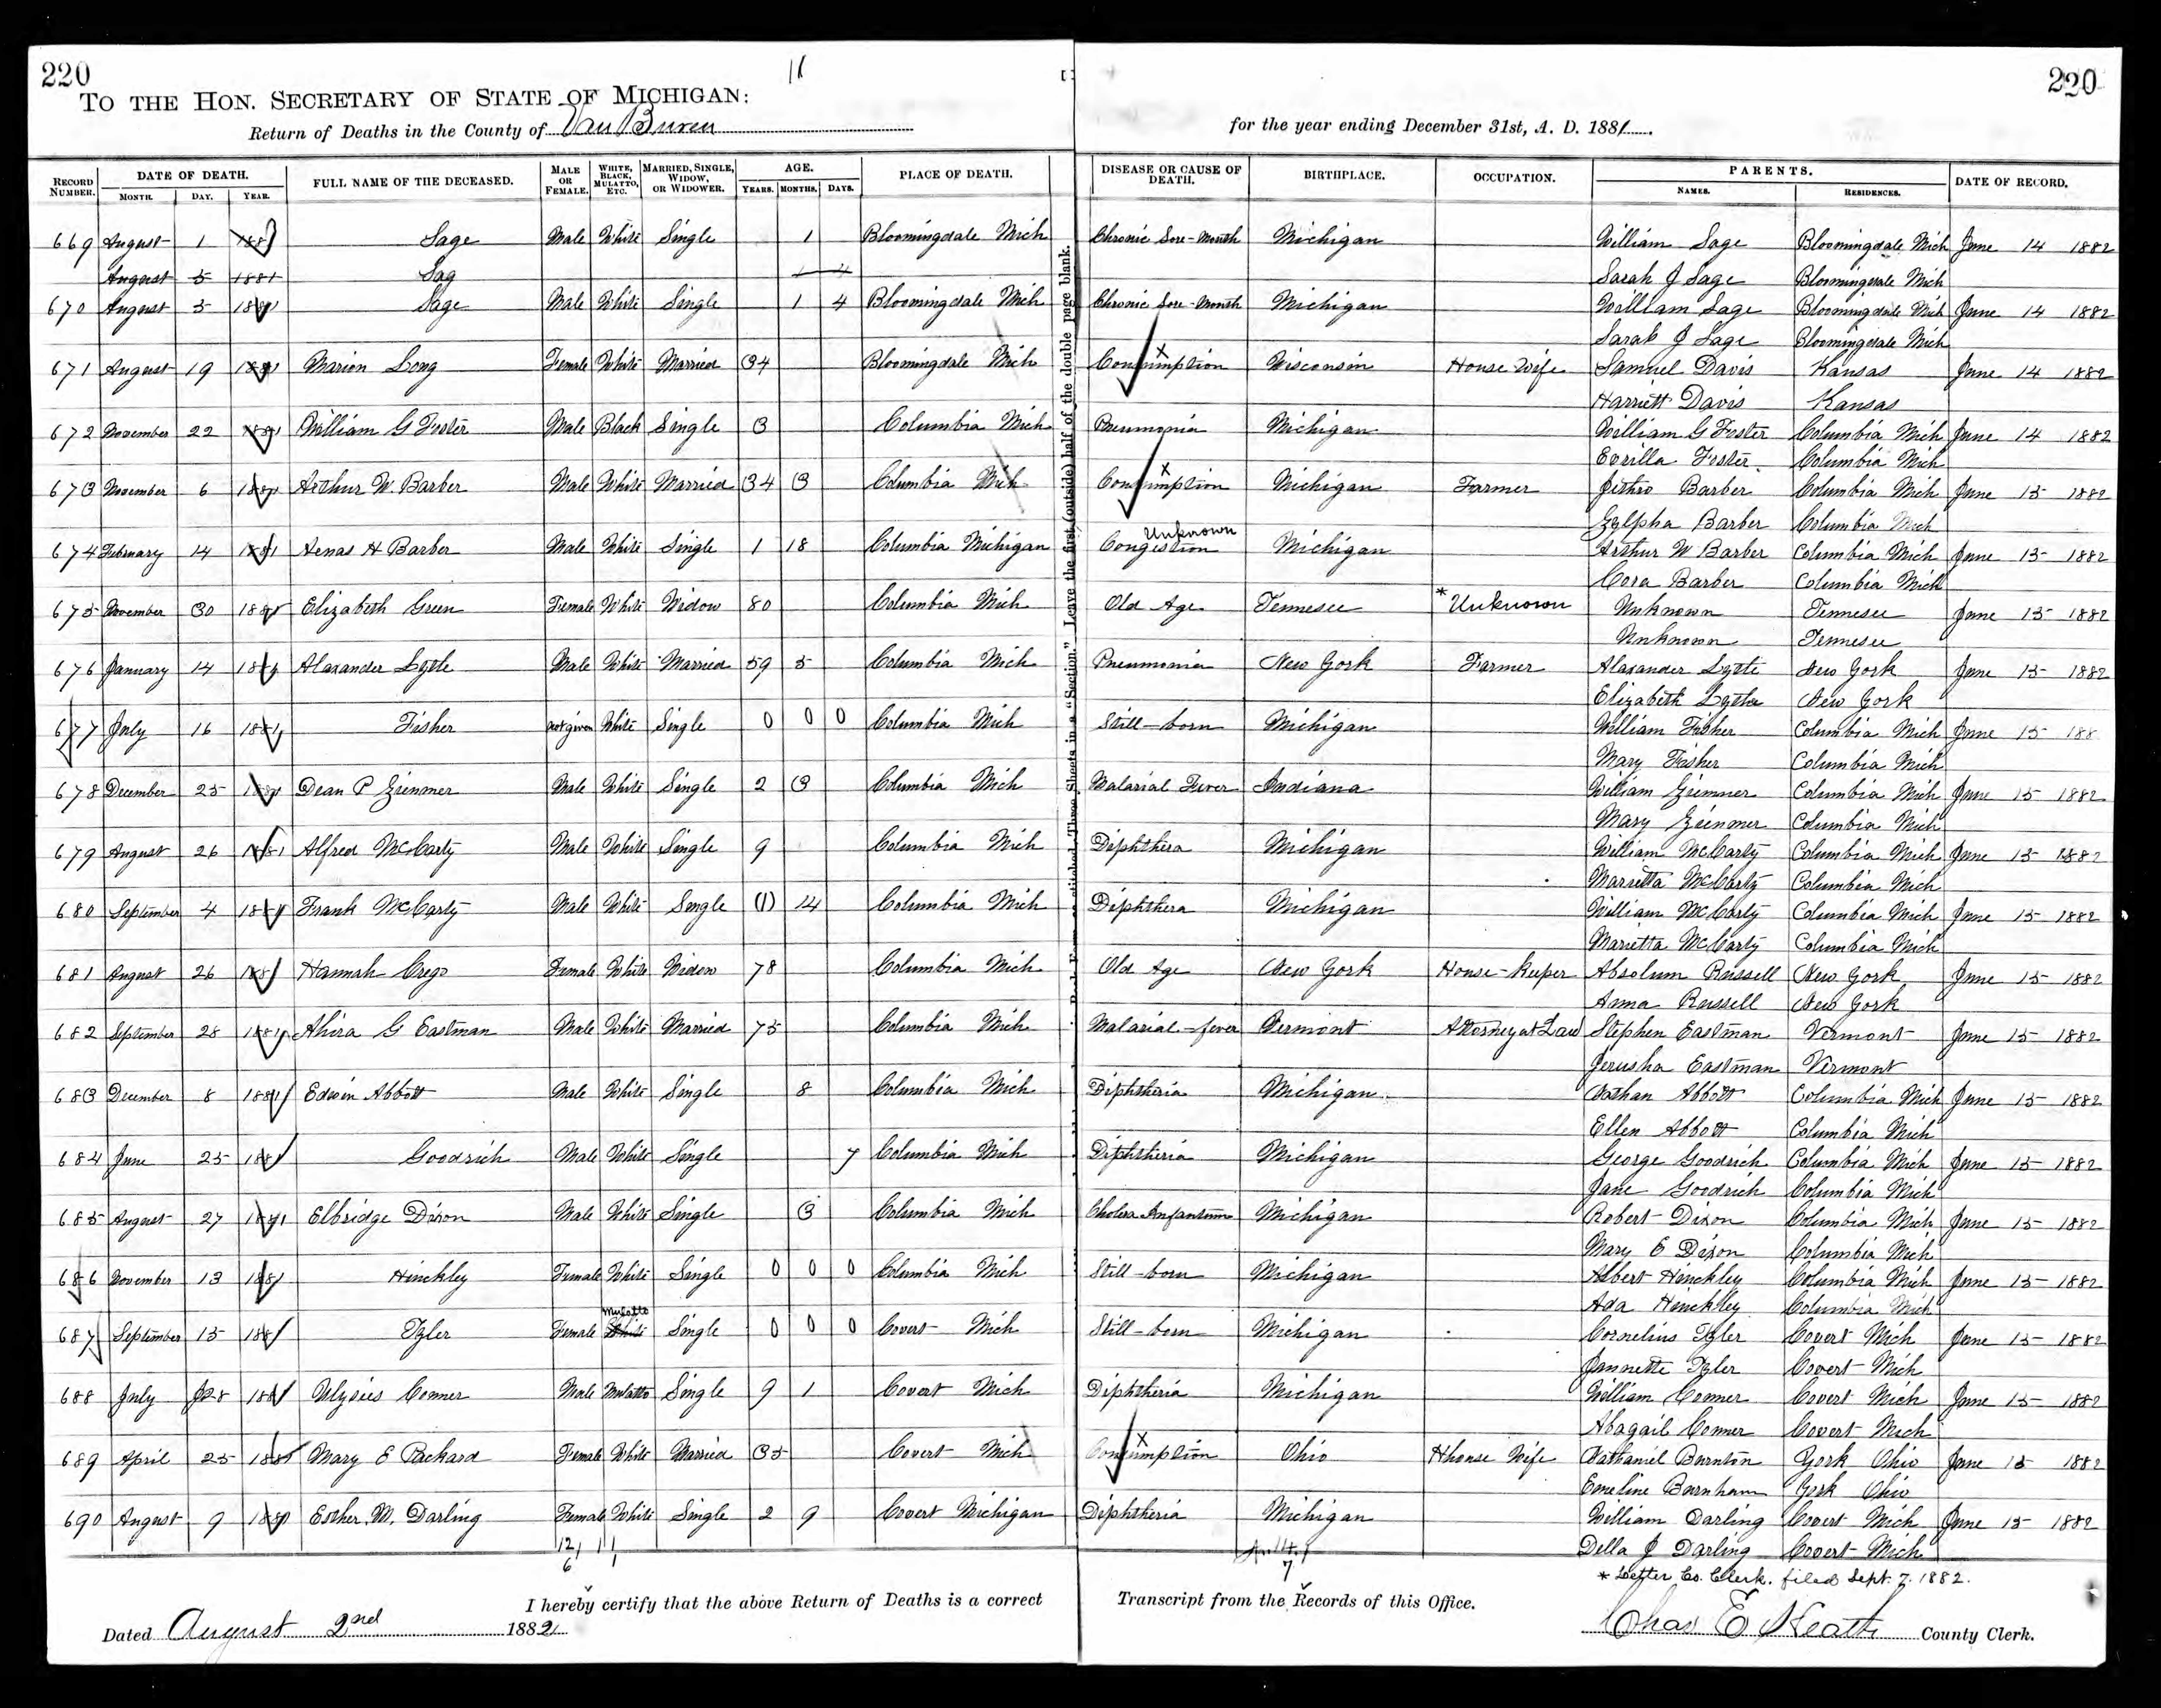 220
11
220
TO THE HON. SECRETARY OF STATE OF MICHIGAN:
Return of Deaths in the County of Van Buren for the year ending December 31st, A. D. 1881.
RECORD NUMBER. DATE OF DEATH. MONTH. DAY. YEAR. FULL NAME OF THE DECEASED. MALE OR FEMALE. WHITE, BLACK, MULATTO, ETC. MARRIED, SINGLE, WIDOW, OR WIDOWER. AGE. YEARS. MONTHS. DAYS. PLACE OF DEATH. DISEASE OR CAUSE OF DEATH. BIRTHPLACE. OCCUPATION. PARENTS. NAMES. RESIDENCES. DATE OF RECORD.
669 August 1 1881 Sage Male White Single 1 Bloomingdale Mich Chronic Sore-Mouth Michigan William Sage Bloomingdale Mich June 14 1882
August 5 1881 Sag 1 4 Sarah J Sage Bloomingdale Mich
670 August 5 1881 Sage Male White Single 1 4 Bloomingdale Mich Chronic Sore-Mouth Michigan William Sage Bloomingdale Mich June 14 1882
Sarah J Sage Bloomingdale Mich
671 August 19 1881 Marion Long Female White Married 34 Bloomingdale Mich Consumption Wisconsin House Wife Samuel Davis Kansas June 14 1882
Harriett Davis Kansas
672 November 22 1881 William G Foster Male Black Single 3 Columbia Mich Pneumonia Michigan William G Foster Columbia Mich June 14 1882
Evrilla Foster Columbia Mich
673 November 6 1881 Arthur W Barber Male White Married 34 3 Columbia Mich Consumption Michigan Farmer Jethro Barber Columbia Mich June 15 1882
Zylpha Barber Columbia Mich
Unknown
674 February 14 1881 Aenas H Barber Male White Single 1 18 Columbia Michigan Congestion Michigan Arthur W Barber Columbia Mich June 15 1882
Cora Barber Columbia Mich
675 November 30 1881 Elizabeth Green Female White Widow 80 Columbia Mich Old Age Tennesee *Unknown Unknown Tennesee June 15 1882
Unknown Tennesee
676 January 14 1881 Alaxander Lytle Male White Married 59 5 Columbia Mich Pneumonia New York Farmer Alaxander Lytle New York June 15 1882
Elizabeth Lytle New York
677 July 16 1881 Fisher not given White Single 0 0 0 Columbia Mich Still-born Michigan William Fisher Columbia Mich June 15 188
Mary Fisher Columbia Mich
678 December 25 1881 Dean P Zimmer Male White Single 2 3 Columbia Mich Malarial Fever Indiana William Zimmer Columbia Mich June 15 1882
Mary Zimmer Columbia Mich
679 August 26 1881 Alfred McCarty Male White Single 9 Columbia Mich Diphthera Michigan William McCarty Columbia Mich June 15 1882
Marietta McCarty Columbia Mich
680 September 4 1881 Frank McCarty Male White Single (1) 14 Columbia Mich Diphthera Michigan William McCarty Columbia Mich June 15 1882
Marietta McCarty Columbia Mich
681 August 26 1881 Hannah Crego Female White Widow 78 Columbia Mich Old Age New York House-Keeper Absolum Russell New York June 15 1882
Anna Russell New York
682 September 28 1881 Ahira G Eastman Male White Married 75 Columbia Mich Malarial-fever Vermont Attorney at Law Stephen Eastman Vermont June 15 1882
Jerusha Eastman Vermont
683 December 8 1881 Edwin Abbott Male White Single 8 Columbia Mich Diphtheria Michigan Nathan Abbott Columbia Mich June 15 1882
Ellen Abbott Columbia Mich
684 June 25 1881 Goodrich Male White Single 7 Columbia Mich Diphtheria Michigan George Goodrich Columbia Mich June 15 1882
Jane Goodrich Columbia Mich
685 August 27 1881 Elbridge Dixon Male White Single 3 Columbia Mich Cholera Infantum Michigan Robert Dixon Columbia Mich June 15 1882
Mary E Dixon Columbia Mich
686 November 13 1881 Hinckley Female White Single 0 0 0 Columbia Mich Still-born Michigan Albert Hinckley Columbia Mich June 15 1882
Ada Hinckley Columbia Mich
Mulatto
687 September 15 1881 Tyler Female White Single 0 0 0 Covert Mich Still-born Michigan Cornelius Tyler Covert Mich June 15 1882
Jannette Tyler Covert Mich
688 July 28 1881 Ulysies Conner Male Mulatto Single 9 1 Covert Mich Diphtheria Michigan William Conner Covert Mich June 15 1882
Abagail Conner Covert Mich
689 April 25 1881 Mary E Packard Female White Married 35 Covert Mich Consumption Ohio Hhouse Wife Nathaniel Burnton York Ohio June 15 1882
Emeline Burnham York Ohio
690 August 9 1881 Esther M. Darling Female White Single 2 9 Covert Michigan Diphtheria Michigan William Darling Covert Mich June 15 1882
Della J Darling Covert Mich
12 11
6 1
7
* Letter Co. Clerk. filed Sept. 7. 1882.
Leave the first (outside) half of the double page blank.
I hereby certify that the above Return of Deaths is a correct Transcript from the Records of this Office.
Dated August 2nd 1882 Chas E Heath County Clerk.